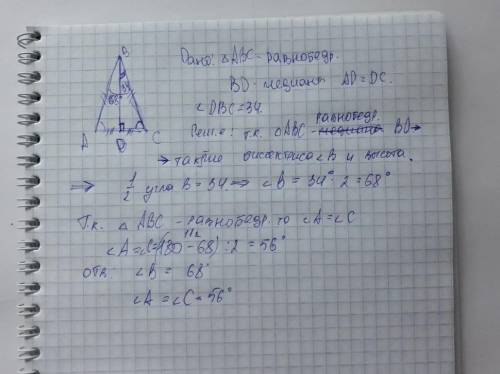 B
A
D
C
Дано: △ABC - равнобедр.
BD - медиана AD = DC.
∠DBC = 34.
равнобедр.
Реш-е: т.к. △ABC - медиана BD →
→ также биссектриса ∠B и высота.
⇒ 1/2 угла B = 34 ⇒ ∠B = 34° · 2 = 68°
Т.к. △ ABC - равнобедр. то ∠A = ∠C
112
∠A = ∠C = (180 - 68) : 2 = 56°
отв: ∠B = 68°
∠A = ∠C = 56°